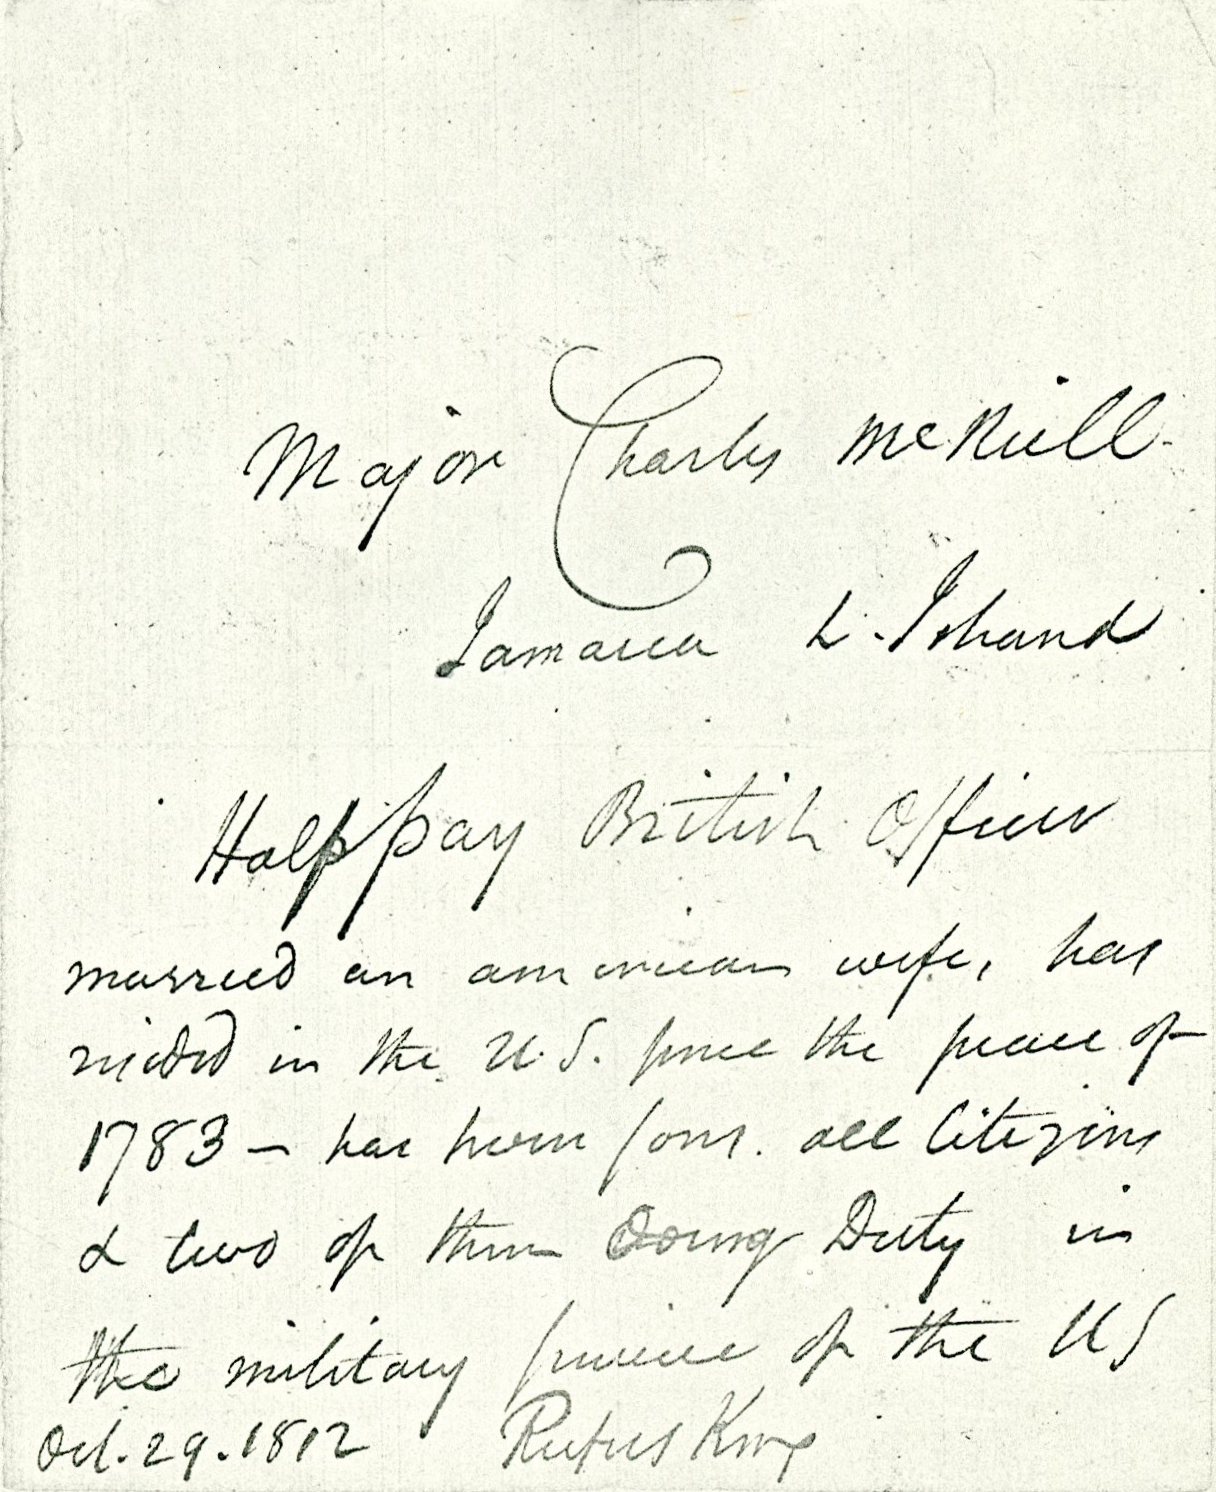 Major Charles McNiell
Jamaica L. Island
Half pay British Officer
married an american wife, has
resided in the U.S. since the peace of
1783 – has seven sons. all Citizens
& two of them Doing Duty in
the military service of the US
Oct. 29. 1812 Rufus King